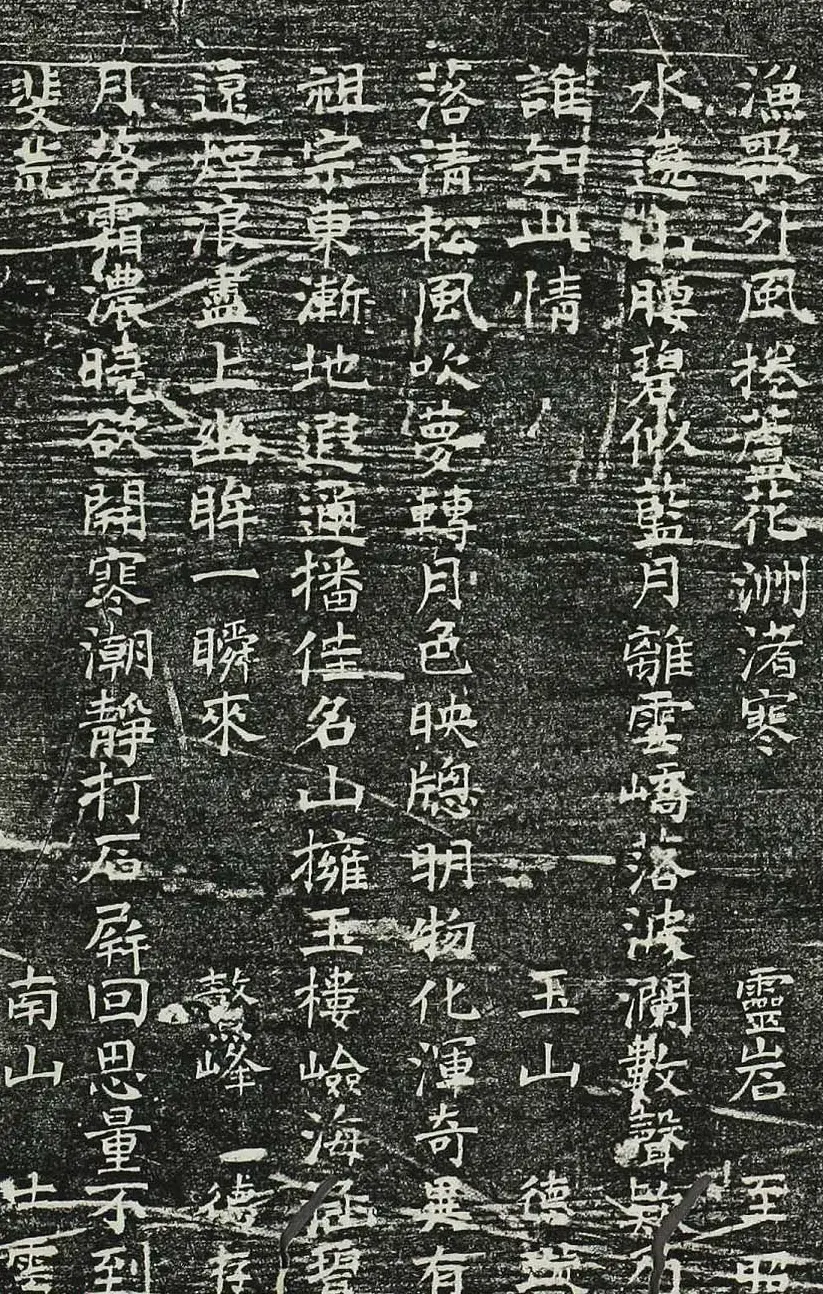 漁歌外風捲蘆花洲渚寒 靈岩 至昭
水遶山腰碧似藍月離雲嶠落波瀾數聲
誰知此情 玉山 德
落清松風吹夢轉月色映牕明物化渾奇異有
祖宗東漸地遐邇播佳名山擁玉樓嶮海涵碧
遠煙浪盡上幽眸一瞬來 鼇峰 一德存
月落霜濃曉欲開寒潮靜打石屏回思量不到
斐荒 南山 士雲